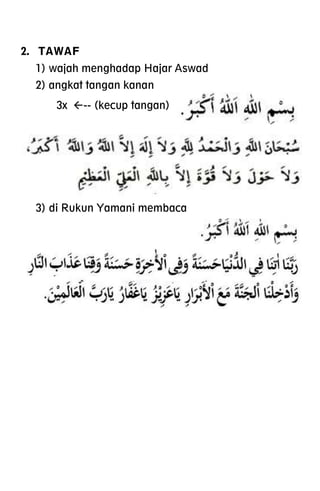 2. TAWAF
1) wajah menghadap Hajar Aswad
2) angkat tangan kanan
3x <-- (kecup tangan) بِسْمِ اللهِ اَللهُ أَكْبَرُ.
سُبْحَانَ اللَّهِ وَالْحَمْدُ لِلَّهِ وَلاَ إِلَهَ إِلاَّ اللَّهُ وَاللَّهُ أَكْبَرُ،
وَلاَ حَوْلَ وَلاَ قُوَّةَ إِلاَّ بِاللَّهِ الْعَلِيِّ الْعَظِيْمِ
3) di Rukun Yamani membaca
بِسْمِ اللهِ اَللهُ أَكْبَرُ.
رَبَّنَا اٰتِنَا فِي الدُّنْيَا حَسَنَةً وَفِى اْلأٰخِرَةِ حَسَنَةً وَقِنَا عَذَابَ النَّارِ
وَأَدْخِلْنَا الْجَنَّةَ مَعَ اْلأَبْرَارِ يَاعَزِيْزُ يَاغَفَّارُ يَارَبَّ الْعَالَمِيْنَ.